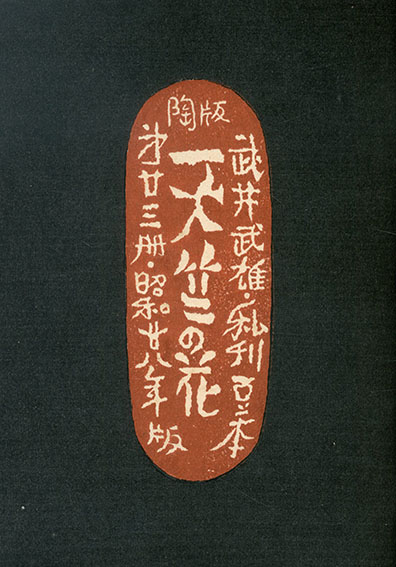 陶版
武井武雄・私刊豆本
天竺の花
第廿三册・昭和廿八年版